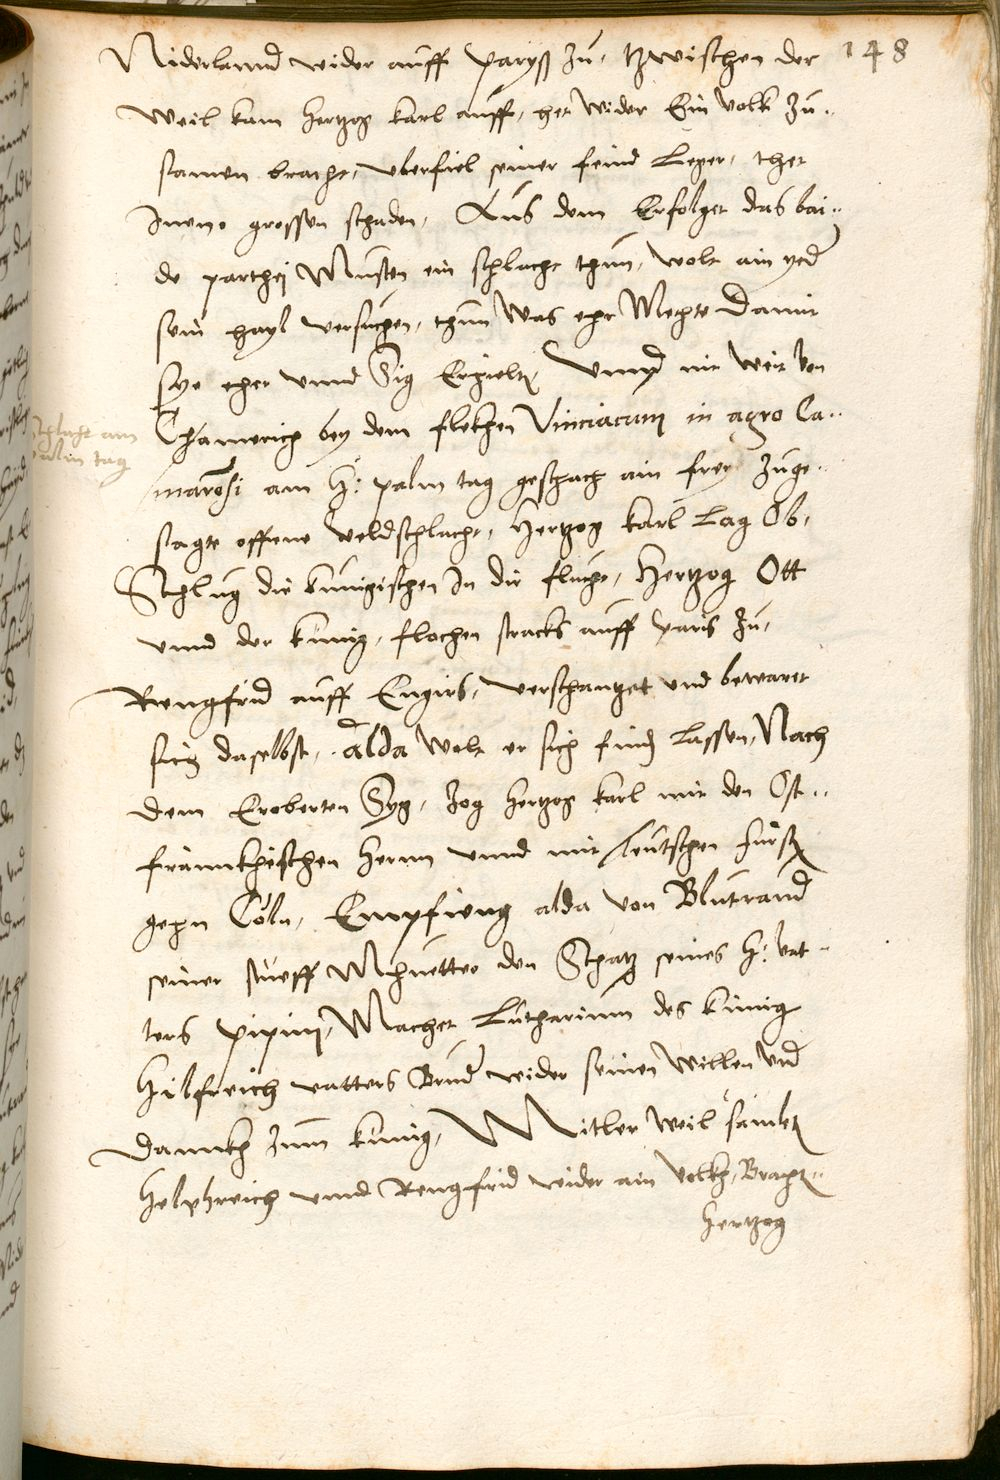 148
Niderlannd wider auff Paryß zu, tzwischen der
weil kam hertzog karl auff, het wider Ein volk zu..
samen bracht, uberfiel seiner feind Leger, thet
Inene grossen schaden, Aus dem Erfolget das bai..
de parthej Musten ein schlacht thun, wolt ain yeder
sein hayl versuchen, thun was ehr Mechte Damit
sye eher unnd Sig Erhielten Unnd nit weit von
Chamerich bey dem flekhen Vinciacum in agro Ca..
marosi am H: palm tag geschach ain frey zuge..
sagte offene veldschlacht, Hertzog karl Lag Ob,
Schlug die künigischen In die flucht, Hertzog Ott
unnd der künig, flochen stracks auff Paris zu,
Rengfrid auff Engirs, verschantzet und bewaret
sich daselbst, alda wolt er sich finden lassen, Nach
dem Eroberten Syg, zog hertzog karl mit den Ost..
frännkhischen herrn unnd mit teutschen fürsten
gehn Cöln, Empfieng alda von Blutrand
seiner stüeff Mhuetter den Schatz seines H: vat..
ters Pipini, Machet Lutharium des künig
Hilfreich vatters Bruder wider seinen willen und
dannkh zum künig, Mitler weil samlet
Helphreich unnd Rengfrid wider ain volkh, Bracht..
hertzog
Schlacht am
palm tag